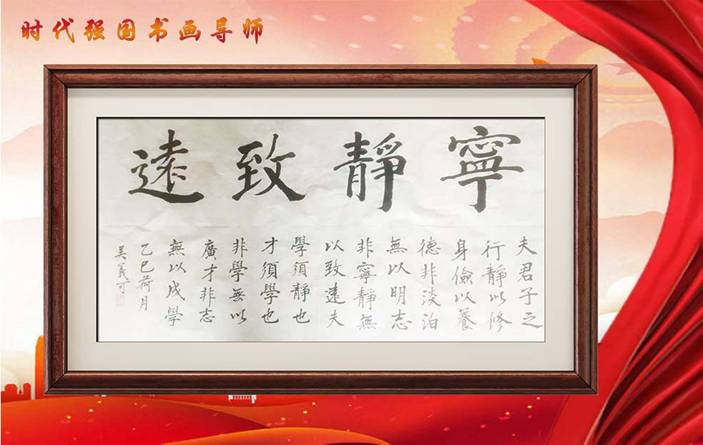 时代强国书画导师
寧靜致遠
夫君子之
行靜以修
身儉以養
德非淡泊
無以明志
非寧靜無
以致遠夫
學須靜也
才須學也
非學無以
廣才非志
無以成學
乙巳荷月
吴義才